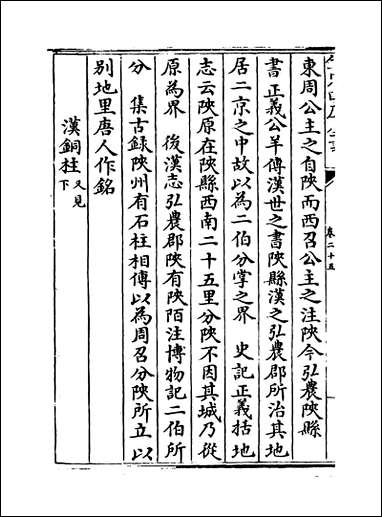 東周公主之自陝而西召公主之注陝今弘農陝縣
書正義公羊傳漢世之書陝縣漢之弘農郡所治其地
居二京之中故以為二伯分掌之界 史記正義括地
志云陝原在陝縣西南二十五里分陝不因其城乃從
原為界 後漢志弘農郡陝有陝陌注博物記二伯所
分 集古録陝州有石柱相傳以為周召分陝所立以
別地里唐人作銘
漢銅柱又見下
卷二十五